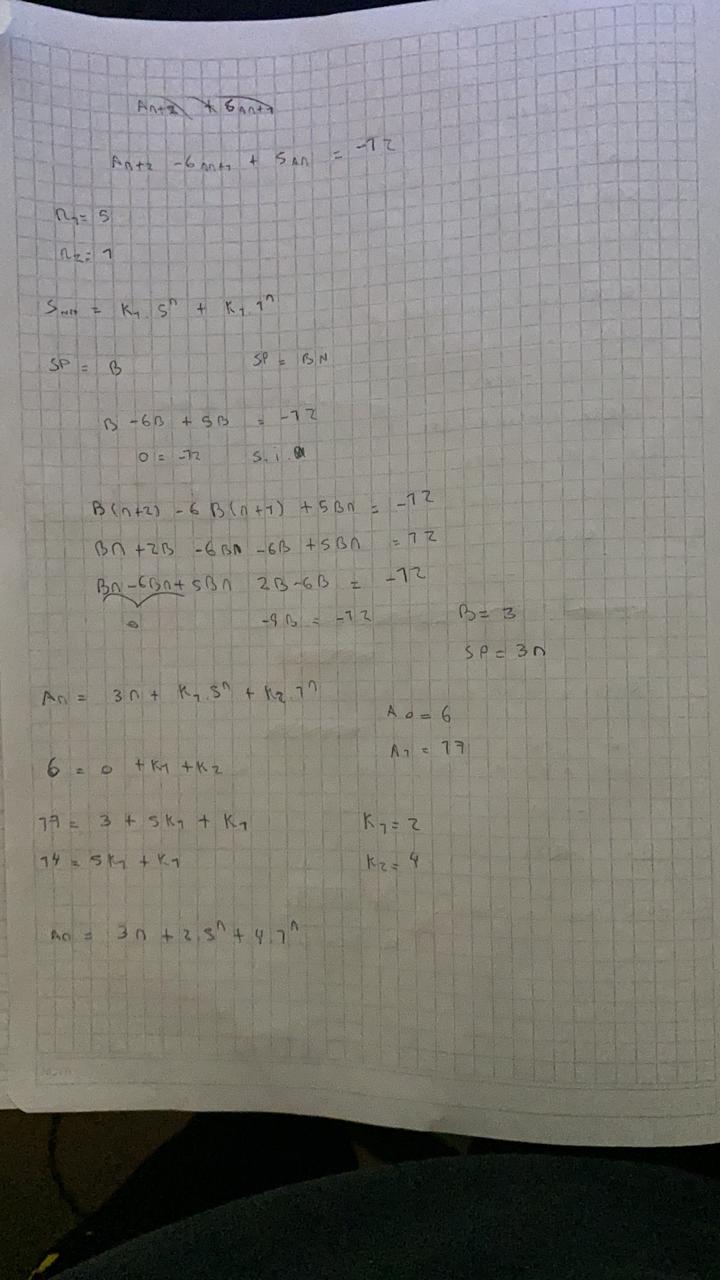 An+2 + 6An+1
An+2 - 6An+1 + 5An = -12
r1= 5
r2= 1
K1.5ⁿ + K1.1ⁿ
SP = B SP = BN
B - 6B + 5B = -12
0 = -12 S.i.
B(n+2) - 6B(n+1) + 5Bn = -12
Bn + 2B - 6Bn - 6B + 5Bn = 12
Bn - 6Bn + 5Bn 2B - 6B = -12
0 -4B = -12 B = 3
SP = 3n
An = 3n + K1.5ⁿ + K2.1ⁿ
A0 = 6
A1 = 17
6 = 0 + K1 + K2
17 = 3 + 5K1 + K1 K1 = 2
14 = 5K1 + K1 K2 = 4
An = 3n + 2.5ⁿ + 4.1ⁿ